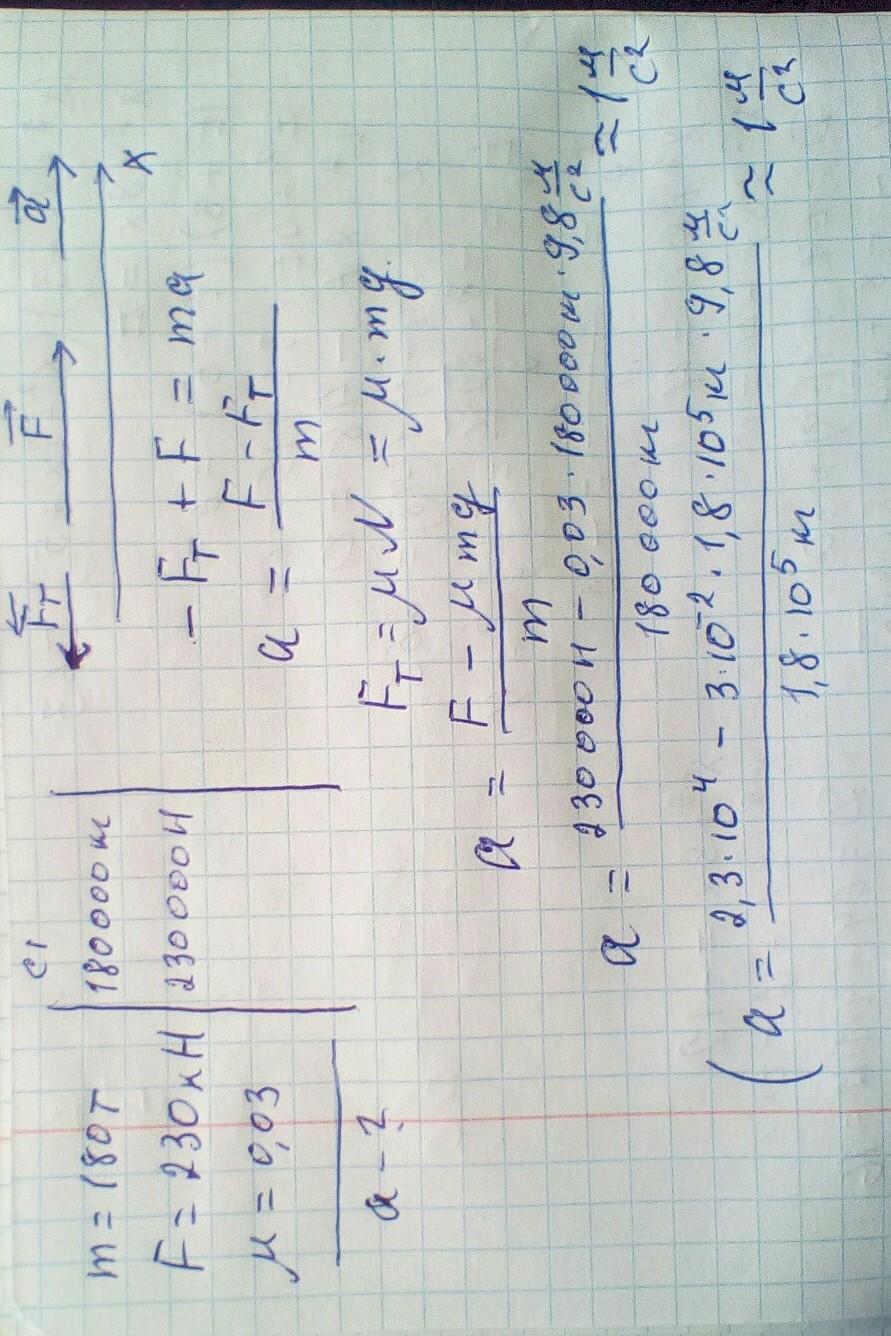 СІ
m = 180т 180000кг
F = 230кН 230000Н
μ = 0,03
a - ?
F⃗т F⃗ a⃗
X
- Fт + F = ma
a = (F - Fт)/m
Fт = μN = μ·mg
a = (F - μmg)/m
a = (230000Н - 0,03·180000кг·9,8 м/с²)/(180000кг) ≈ 1 м/с²
(a = (2,3·10⁴ - 3·10⁻²·1,8·10⁵кг·9,8 м/с²)/(1,8·10⁵кг) ≈ 1 м/с²